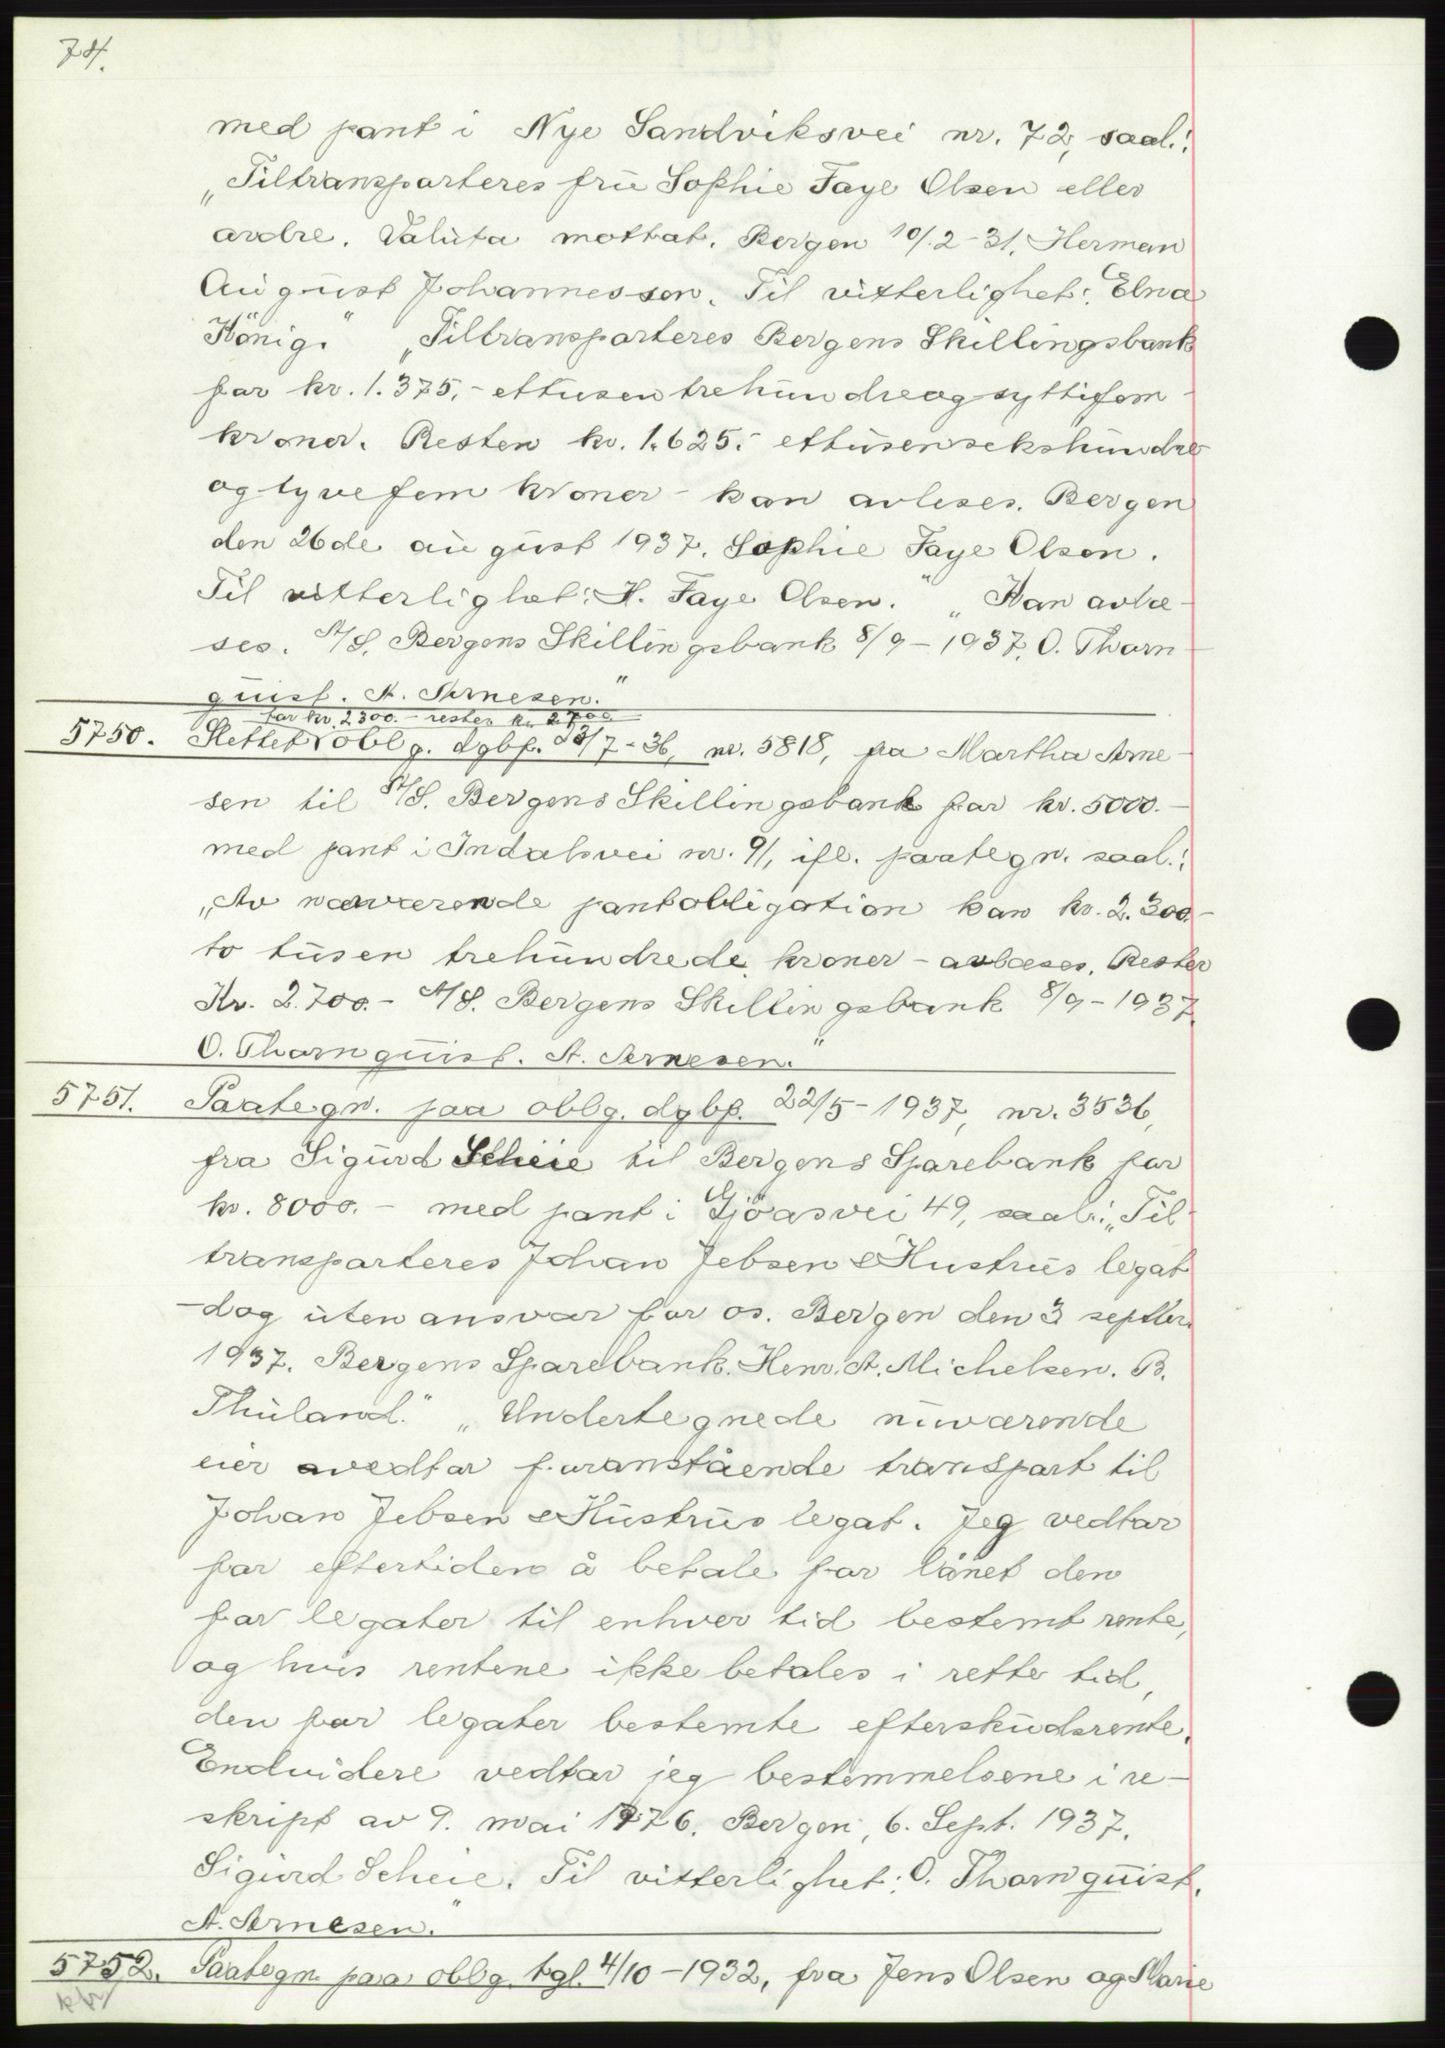 74.
med pant i Nye Sandviksvei nr. 72, saal.:
„Tiltransporteres fru Sophie Faye Olsen eller
ordre. Valuta mottat. Bergen 10/2-31. Herman
August Johannessen. Til vitterlighet: Elna
König." „Tiltransporteres Bergens Skillingsbank
for kr. 1.375,- ettusentrehundreogsyttifem
kroner. Resten kr. 1.625.- ettusensekshundre
og tyvefem kroner - kan avleses. Bergen
den 26de august 1937. Sophie Faye Olsen.
Til vitterlighet: H. Faye Olsen." „Kan avlæ-
ses. A/S. Bergens Skillingsbank 8/9-1937. O. Thorn-
quist. A. Arnesen."
for kr. 2300.- rester kr. 2700.
5750. Slettet oblg. dgbf. 23/7-36, nr. 5818, fra Martha Arne-
sen til A/S. Bergens Skillingsbank for kr. 5000.-
med pant i Indalsvei nr. 91, ifl. paategn. saal.:
„Av nærværende pantobligation kan kr. 2.300.-
to tusen trehundrede kroner - avlæses. Rester
Kr. 2.700.- A/S. Bergens Skillingsbank 8/9-1937
O. Thornquist. A. Arnesen."
5751. Paategn. paa oblg. dgbf. 22/5-1937, nr. 3536,
fra Sigurd Scheie til Bergens Sparebank for
kr. 8000.- med pant i Gjöasvei 49, saal.: „Til-
transporteres Johan Jebsen & Hustrus legat
- dog uten ansvar for os. Bergen den 3 septbr.
1937. Bergens Sparebank. Henr. A. Michelsen. B.
Thuland." „Undertegnede nuværende
eier vedtar foranstående transport til
Johan Jebsen & Hustrus legat. Jeg vedtar
for eftertiden å betale for lånet den
for legater til enhver tid bestemt rente,
og hvis rentene ikke betales i rette tid,
den for legater bestemte efterskudsrente.
Endvidere vedtar jeg bestemmelsene i re-
skript av 9. mai 1776. Bergen, 6. Sept. 1937.
Sigurd Scheie. Til vitterlighet: O. Thornquist.
A. Arnesen."
5752. Paategn. paa oblg. tgl. 4/10-1932, fra Jens Olsen og Marie